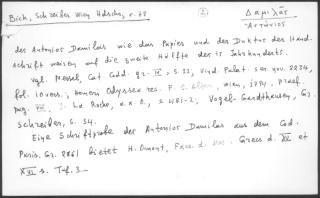 Bick, Schreiber Wien. Hdschr., S. 78
2
Δαμιλᾶς
Ἀντώνιος
des Antonios Damilas wie das Papier und der Duktus der Hand-
schrift weisen auf die zweite Hälfte des 15 Jahrhunderts.
vgl. Cat. Codd. gr. IV, S. 32, Vind. Palat. 2234,
fol. 10 vers., Odyssea rec. Wien, 1794, Praef.
pag. J. La Roche, a.a.O., S. 481-2, Vogel-Gardthausen, Gr.
Schreiber, S. 34.
Eine Schriftprobe des Antonios Damilas aus dem Cod.
Paris. Gr. 2861 bietet H. Omont, Facs. d. Mss. Grecs d. XV et
XVI s. Taf. 3